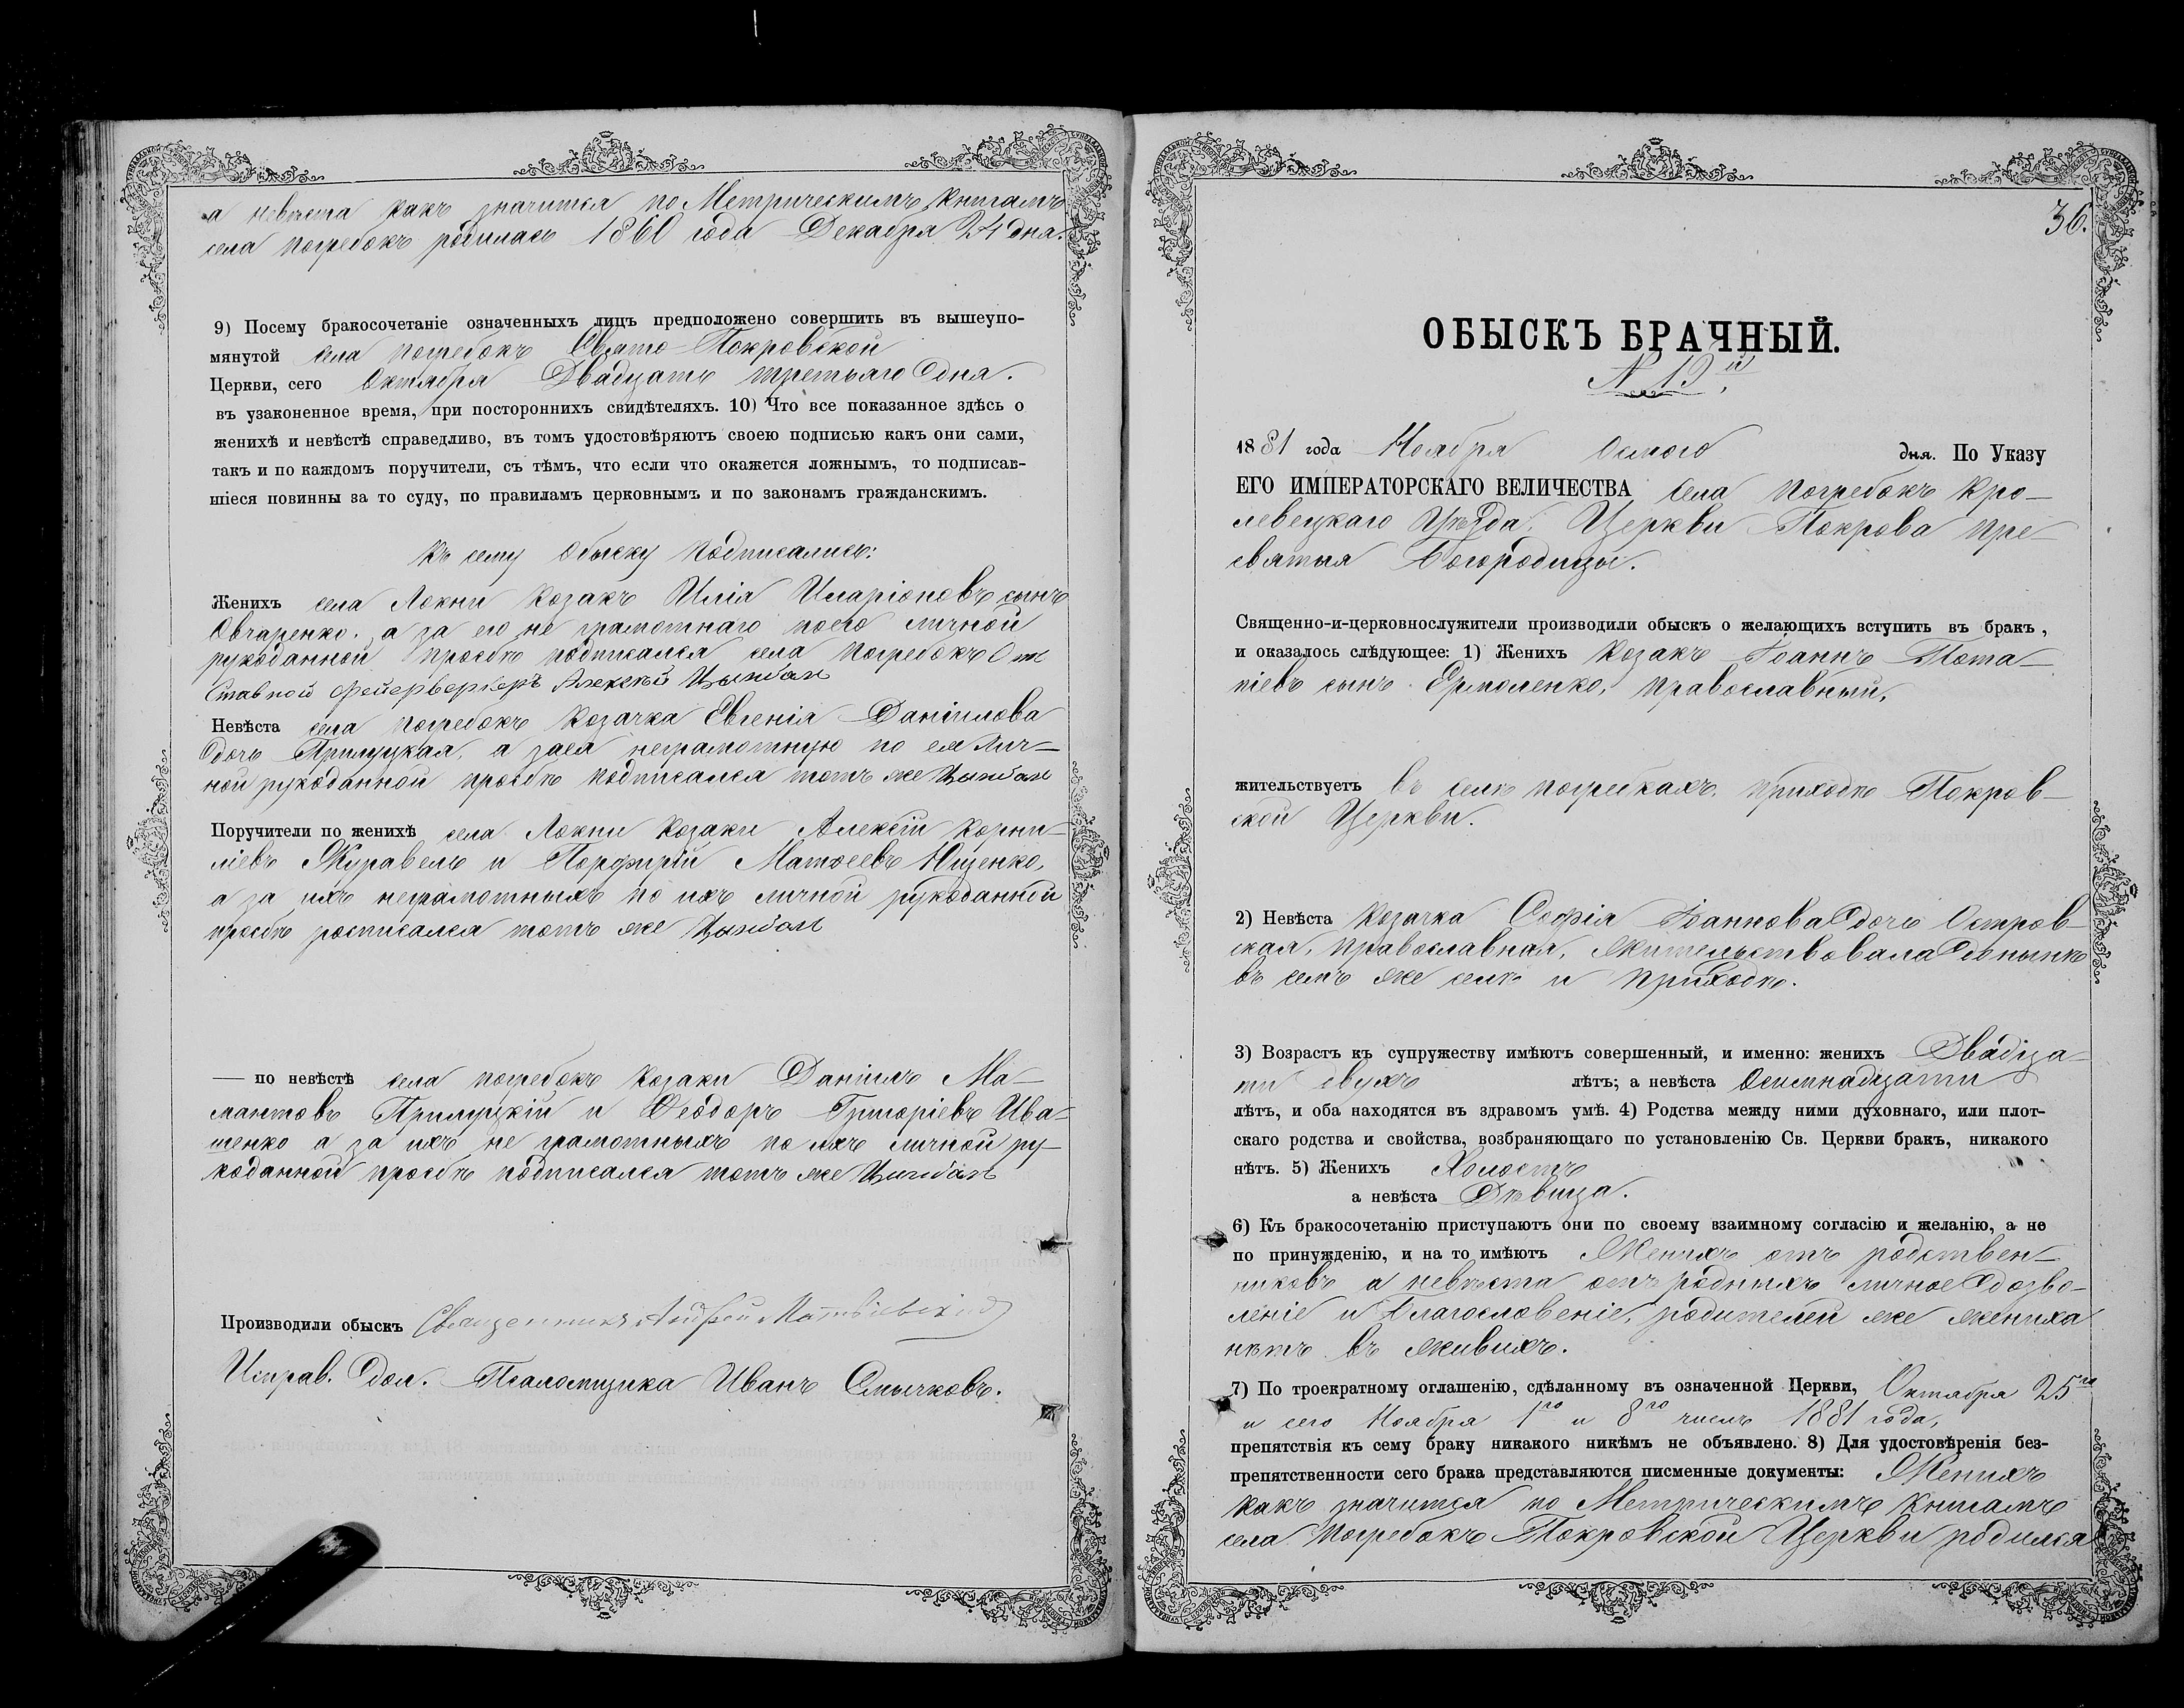 а невѣста какъ значится по Метрическимъ Книгамъ
села Погребокъ родилась 1860 года Декабря 24 дня.
9) Посему бракосочетаніе означенныхъ лицъ предположено совершить въ вышеупо-
мянутой села Погребокъ Свято-Покровской
Церкви, сего Октября Двадцать третьяго дня.
въ узаконенное время, при постороннихъ свидѣтеляхъ. 10) Что все показанное здѣсь о
женихѣ и невѣстѣ справедливо, въ томъ удостовѣряютъ своею подписью какъ они сами,
такъ и по каждомъ поручители, съ тѣмъ, что если что окажется ложнымъ, то подписав-
шіеся повинны за то суду, по правиламъ церковнымъ и по законамъ гражданскимъ.
Къ сему Обыску Подписались:
Женихъ села Локни Козакъ Илія Иларіоновъ сынъ
Овчаренко. а за его не грамотнаго по его личной
рукоданной прозьбѣ подписался села Погребокъ От
ставной фейерверкеръ Алексѣй
Невѣста села Погребокъ Козачка Евгенія Даніилова
дочь Прилуцкая, а за ея неграмотную по ея Лич-
ной рукоданной прозьбѣ подписался тотъ же
Поручители по женихѣ села Локни Козаки Алексій Корни-
ліевъ Журавель и Порфирій Матѳеевъ Ющенко,
а за ихъ неграмотныхъ по ихъ личной рукоданной
прозьбѣ росписался тотъ же
— по невѣстѣ села Погребокъ Козаки Даніилъ Ма-
мантовъ Прилуцкій и Ѳеодоръ Григоріевъ Ива-
щенко а за ихъ не грамотныхъ по ихъ личной ру-
коданной прозьбѣ подписался тотъ же
Производили обыскъ Священникъ Андрей
Исправ. дол. Псаломщика Иванъ Смычковъ.
36.
ОБЫСКЪ БРАЧНЫЙ.
N 19й
1881 года Ноября Осмого дня. По Указу
ЕГО ИМПЕРАТОРСКАГО ВЕЛИЧЕСТВА Села Погребокъ Кро-
левецкаго Уѣзда. Церкви Покрова Пре-
святыя Богородицы.
Священно-и-церковнослужители производили обыскъ о желающихъ вступить въ бракъ,
и оказалось слѣдующее: 1) Женихъ Козакъ Іоаннъ Пота-
піевъ сынъ Ермоленко, Православный,
жительствуетъ въ селѣ Погребкахъ. Приходѣ Покров-
ской Церкви.
2) Невѣста Козачка Софія Іоаннова дочь Остров-
ская, Православная, Жительствовала донынѣ
въ семъ же селѣ и Приходѣ.
3) Возрастъ къ супружеству имѣютъ совершенный, и именно: женихъ Двадца-
ти двухъ лѣтъ; а невѣста Осимнадцати
лѣтъ, и оба находятся въ здравомъ умѣ. 4) Родства между ними духовнаго, или плот-
скаго родства и свойства, возбраняющаго по установленію Св. Церкви бракъ, никакого
нѣтъ. 5) Женихъ Холостъ
а невѣста Дѣвица.
6) Къ бракосочетанію приступаютъ они по своему взаимному согласію и желанію, а не
по принужденію, и на то имѣютъ Женихъ отъ родствен-
никовъ а невѣста отъ родныхъ личное дозво-
леніе и Благословеніе, родителей же жениха
нѣтъ въ живыхъ.
7) По троекратному оглашенію, сдѣланному въ означенной Церкви, Октября 25го
и сего Ноября 1го и 8го числъ 1881 года,
препятствія къ сему браку никакого никѣмъ не объявлено. 8) Для удостовѣренія без-
препятственности сего брака представляются писменные документы: Женихъ
какъ значится по Метрическимъ Книгамъ
села Погребокъ Покровской Церкви родился